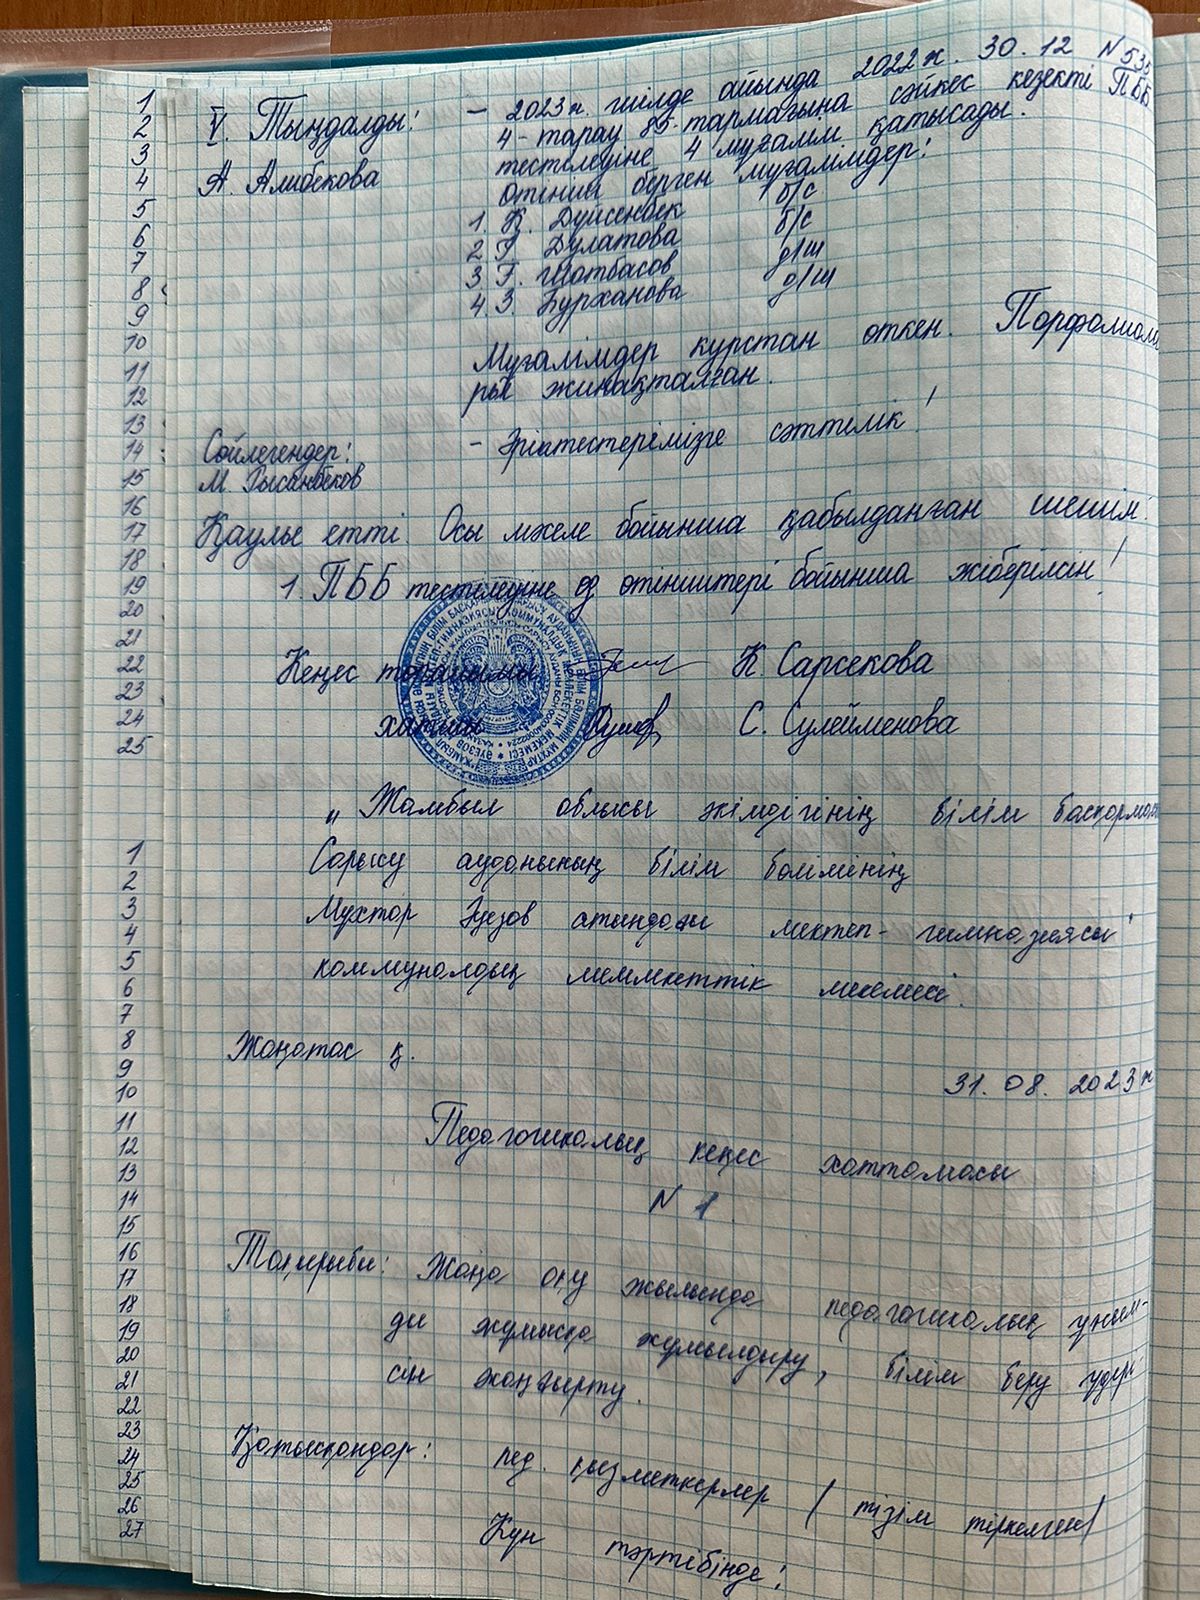 V. Тыңдалды: – 2023ж. шілде айында 2022ж. 30.12 №535
4-тарау 85-тармағына сәйкес кезекті ПББ
тестелеуіне 4 мұғалім қатысады.
А. Алибекова өтініш берген мұғалімдер:
1. Қ. Дүйсенбек б/с
2 Г. Дулатова б/с
3 Г. Шотбасов д/ш
4. З. Бурханова д/ш
Мұғалімдер курстан өткен. Порфолиола
ры жинақталған.
Сөйлегендер: – Әріптестерімізге сәттелік!
М. Рысанбеков
Қаулы етті. Осы мәселе бойынша қабылданған шешім:
1. ПББ тестелеуіне өз өтініштері бойынша жіберілсін!
Кеңес төрайымы К. Сарсекова
хатшы С. Сулейменова
„Жамбыл облысы әкімдігінің білім басқармасы
Сарысу ауданының білім бөлімінің
Мұхтар Әуезов атындағы мектеп-гимназиясы"
коммуналдық мемлекеттік мекемесі.
Жаңатас қ.
31.08.2023ж
Педагогикалық кеңес хаттамасы
№ 1.
Тақырыбы: Жаңа оқу жылында педагогикалық ұжым-
ды жұмысқа жұмылдыру, білім беру үдері
сін жаңғырту.
Қатысқандар: пед. қызметкерлер / тізім тіркелген/
Күн тәртібінде:
1
2
3
4
5
6
7
8
9
10
11
12
13
14
15
16
17
18
19
20
21
22
23
24
25
1
2
3
4
5
6
7
8
9
10
11
12
13
14
15
16
17
18
19
20
21
22
23
24
25
26
27